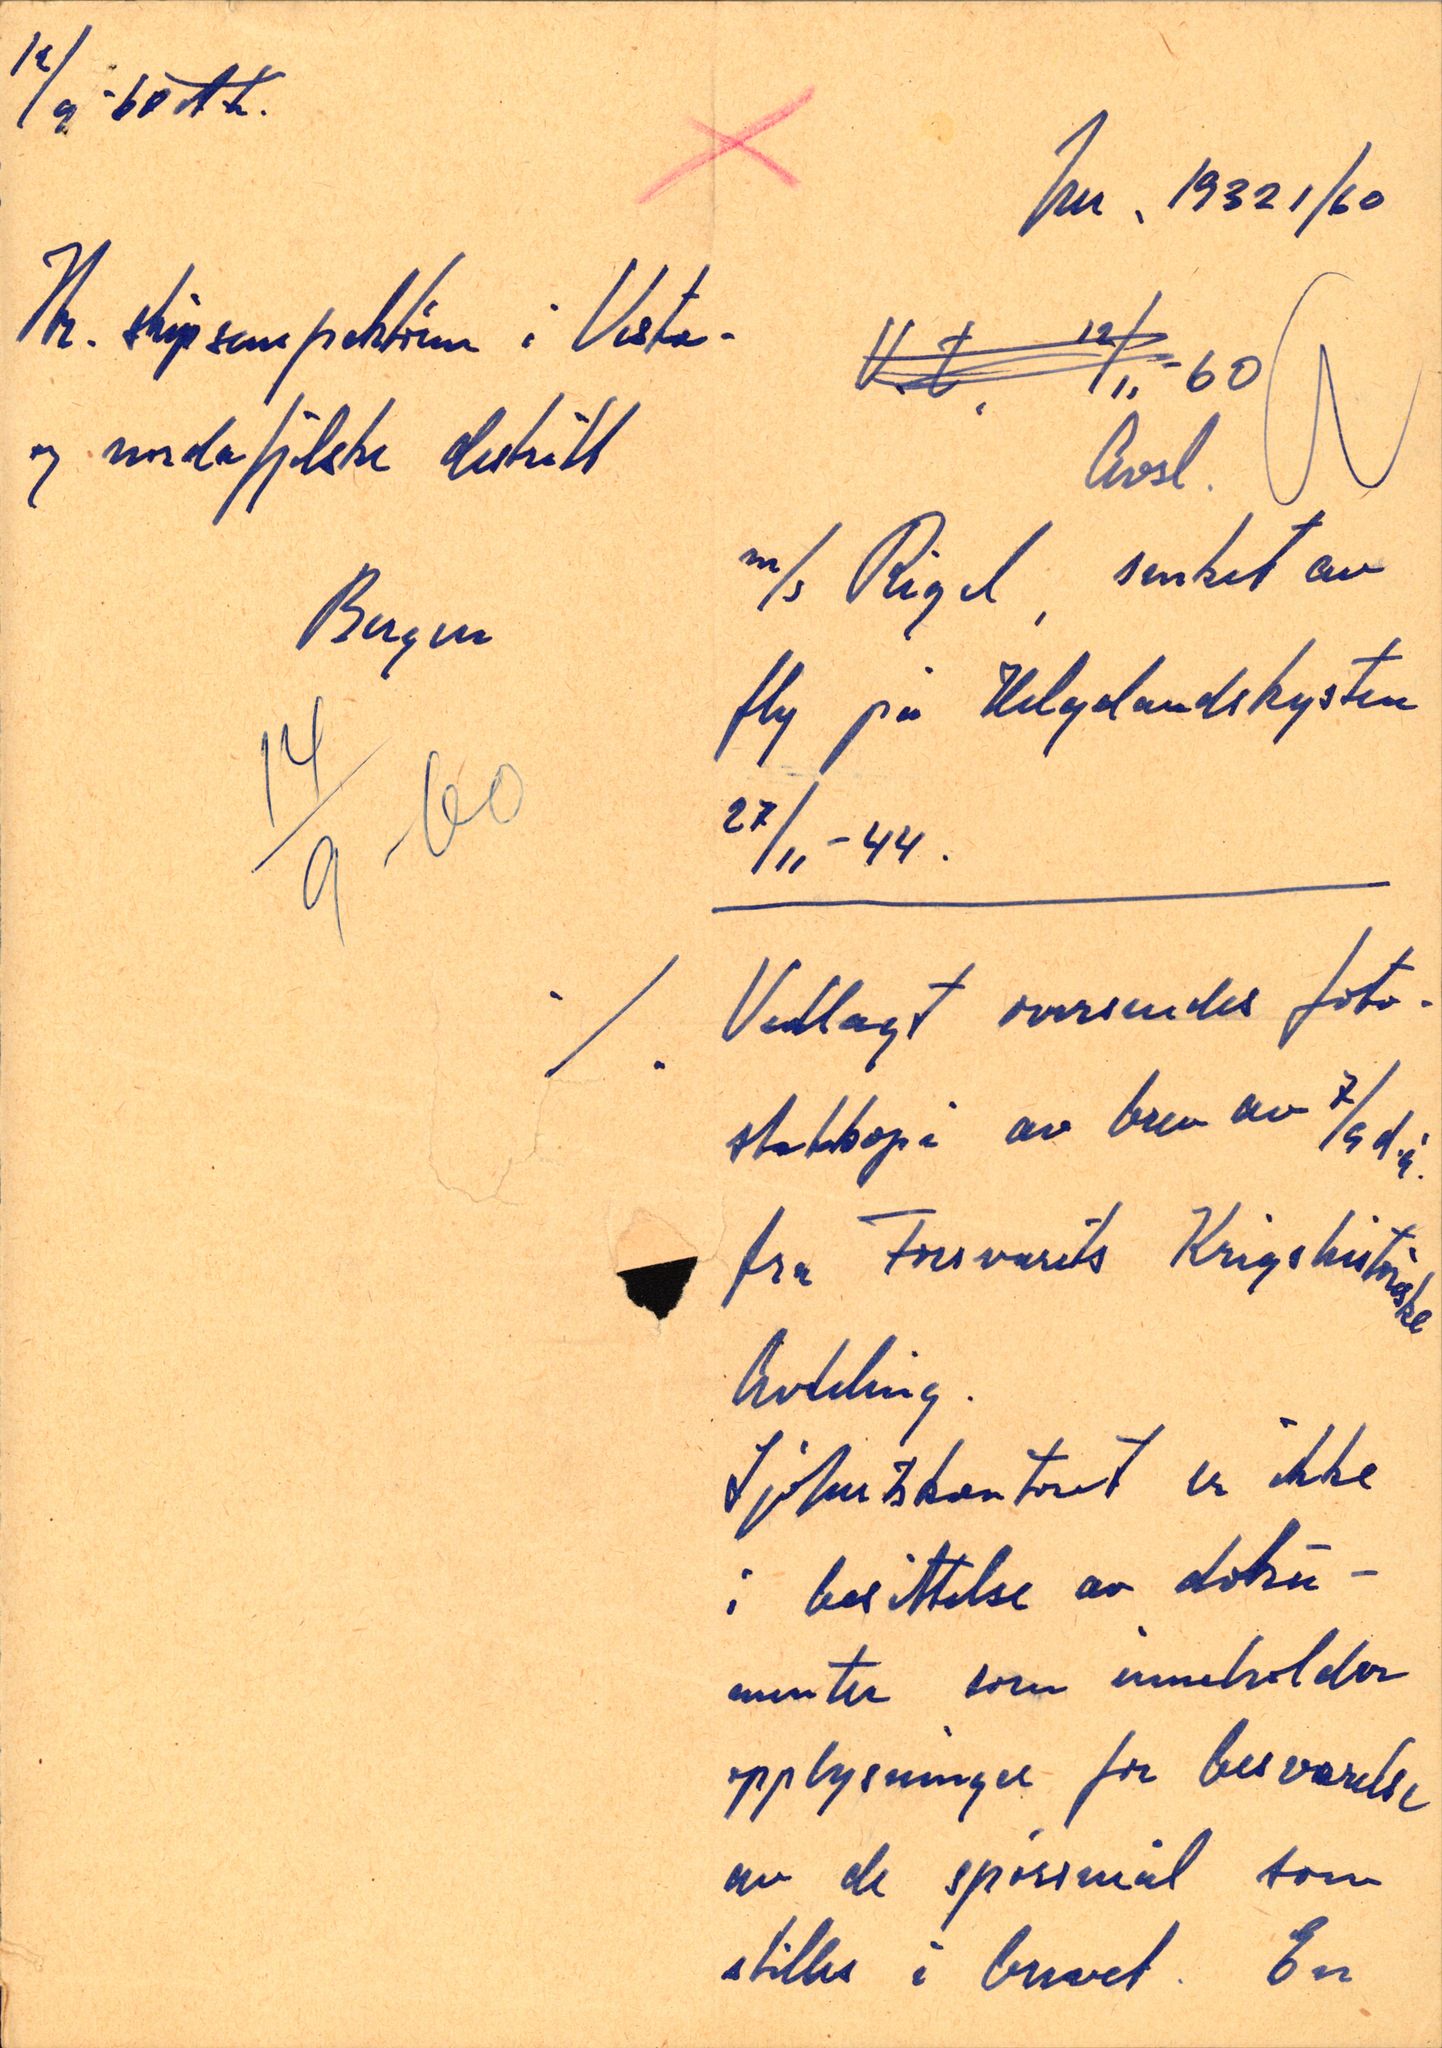 12/9-60
Jnr. 19321/60
Hr. skipsinspektøren i Vesta-
og nordafjelske distrikt
V.t. 12/11-60
Avsl.
Bergen
14/9-60
m/s Rigel, senket av
fly på Helgelandskysten
27/11-44.
./. Vedlagt oversendes foto-
statkopi av brev av 7/9 d.å.
fra Forsvarets Krigshistoriske
Avdeling.
Sjøfartskontoret er ikke
i besittelse av doku-
menter som inneholder
opplysninger for besvarelse
av de spørsmål som
stilles i brevet. En